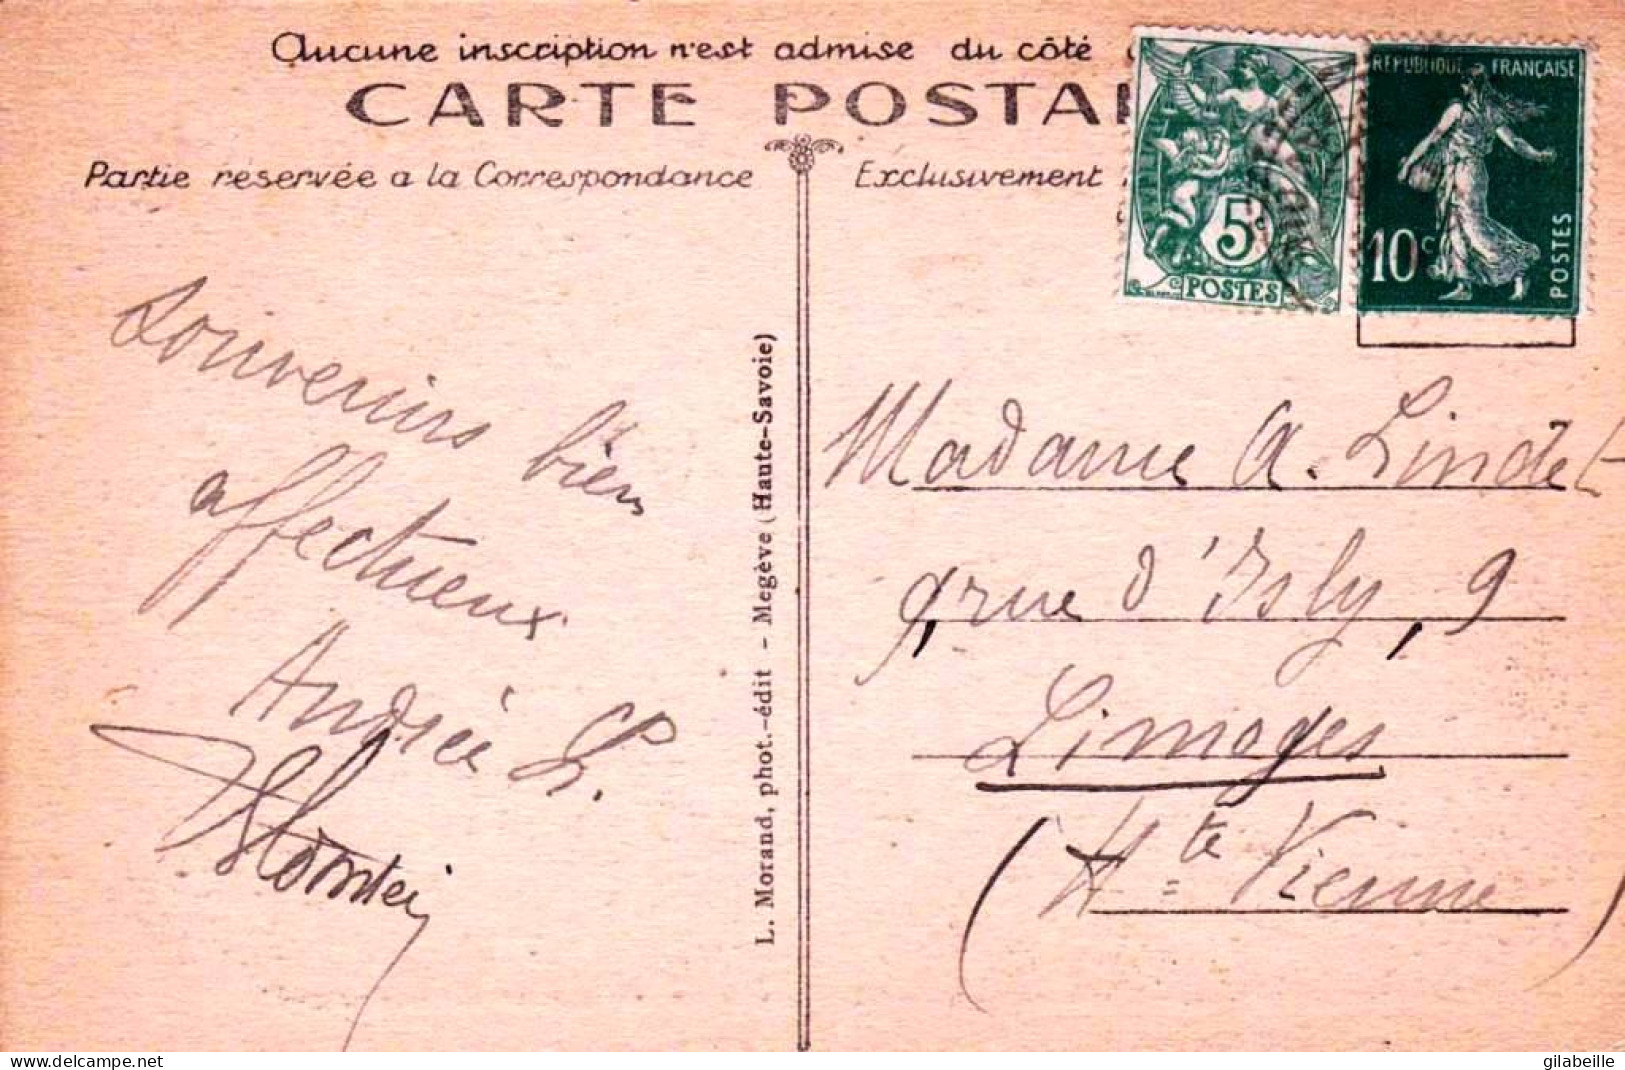 Aucune inscription n'est admise du côté
CARTE POSTA
Partie réservée a la Correspondance
Exclusivement
5c
POSTES
RÉPUBLIQUE FRANÇAISE
10c
POSTES
Souvenirs bien
affectueux
Andrée L.
L. Morand, phot.-édit - Megève (Haute-Savoie)
Madame A. Lindet
9, rue d'Isly, 9
Limoges
(Hte Vienne)
www.delcampe.net
gilabeille